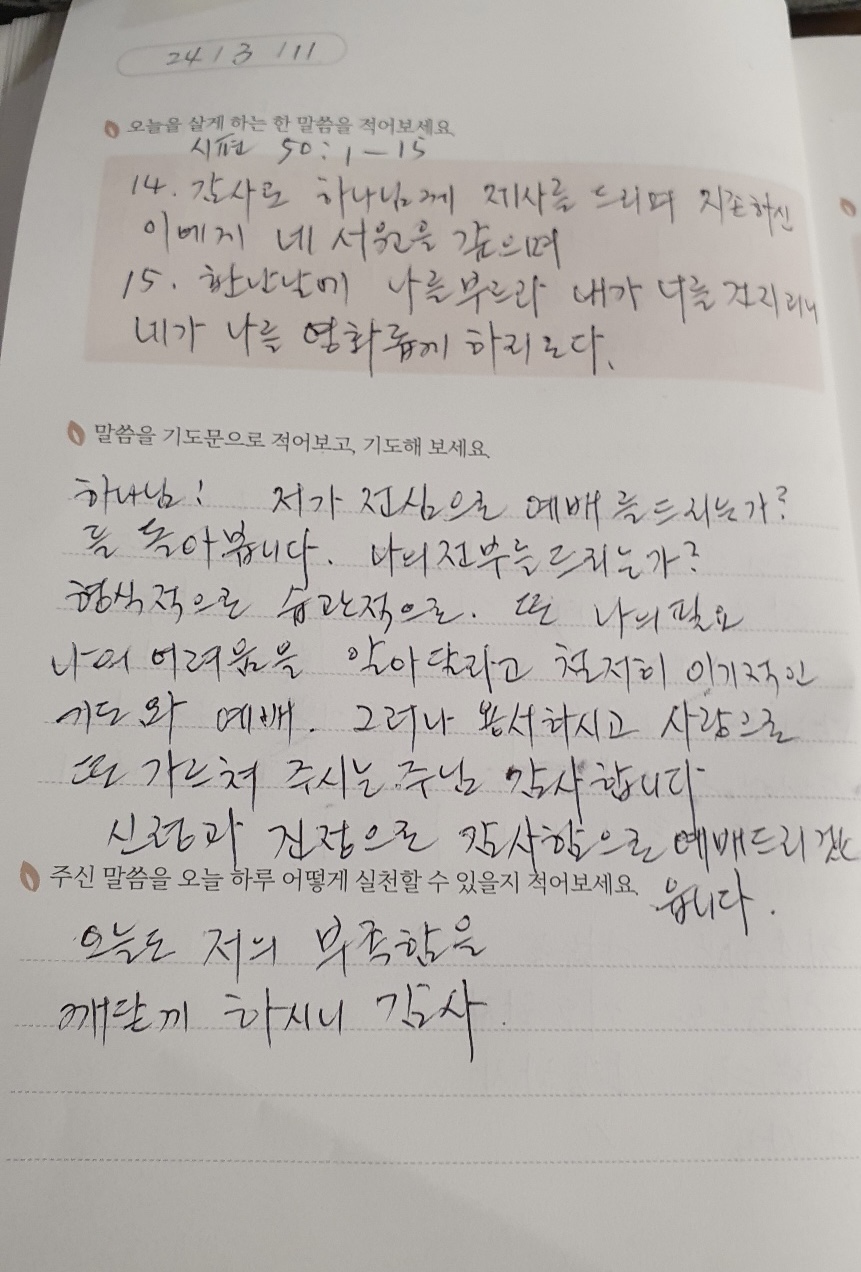 24 / 3 / 11
오늘을 살게 하는 한 말씀을 적어보세요.
시편 50 : 1 - 15
14. 감사로 하나님께 제사를 드리며 지존하신
이에게 네 서원을 갚으며
15. 환난날에 나를 부르라 내가 너를 건지리니
네가 나를 영화롭게 하리로다.
말씀을 기도문으로 적어보고, 기도해 보세요.
하나님! 저가 전심으로 예배를 드리는가?
를 돌아봅니다. 나의 전부를 드리는가?
형식적으로 습관적으로. 또 나의 필요
나의 어려움을 알아달라고 철저히 이기적인
기도와 예배. 그러나 용서하시고 사랑으로
또 가르쳐 주시는 주님 감사합니다
신령과 진정으로 감사함으로 예배드리겠
습니다.
주신 말씀을 오늘 하루 어떻게 실천할 수 있을지 적어보세요.
오늘도 저의 부족함을
깨닫게 하시니 감사.